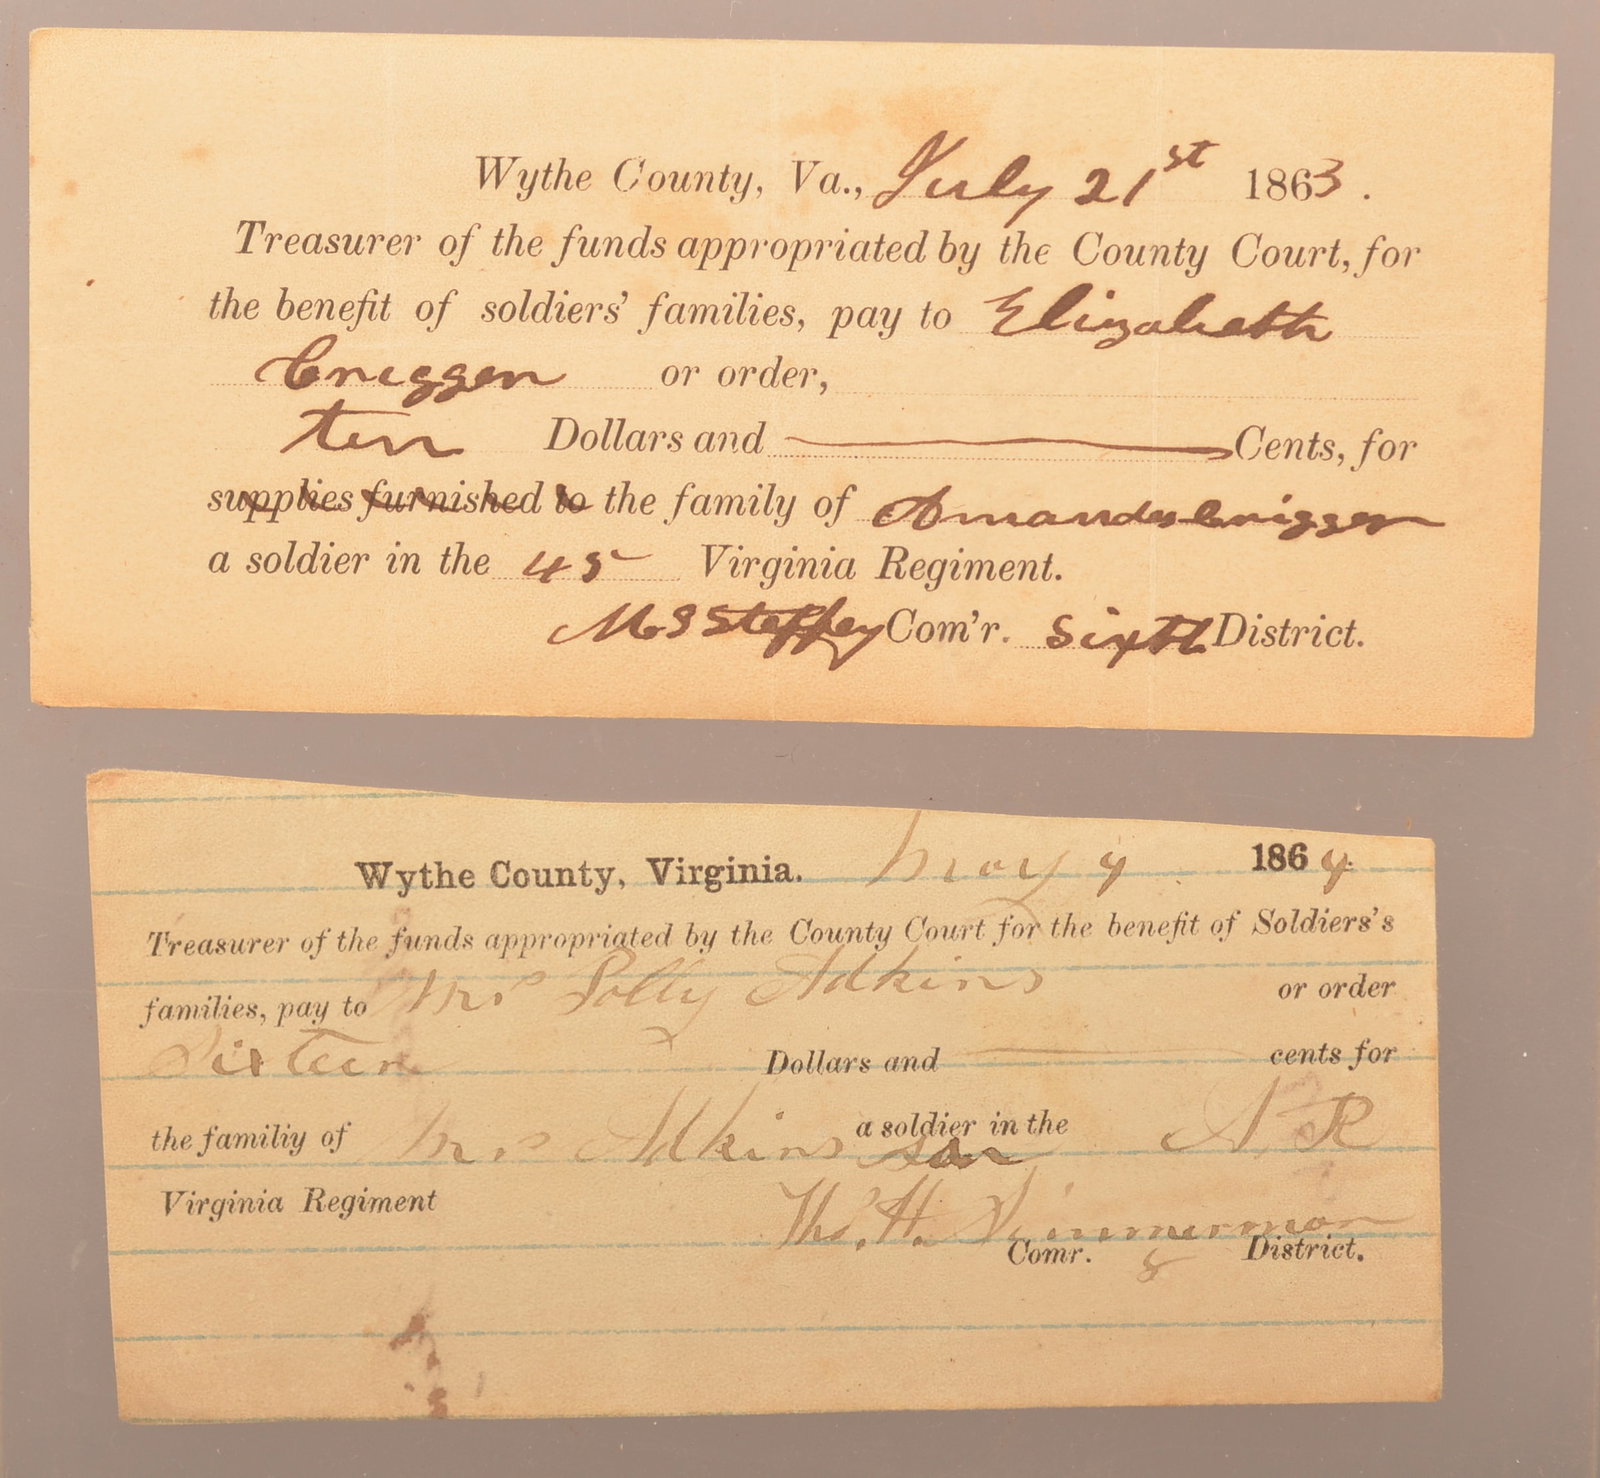 Wythe County, Va., July 21st 1863.
Treasurer of the funds appropriated by the County Court, for
the benefit of soldiers' families, pay to Elizabeth
Criggen or order,
ten Dollars and Cents, for
supplies furnished to the family of Amandes Criggen
a soldier in the 45 Virginia Regiment.
M S Steffey Com'r. Sixth District.
Wythe County, Virginia. May 4 1864.
Treasurer of the funds appropriated by the County Court for the benefit of Soldiers's
families, pay to Mrs Polly Adkins or order
Sixteen Dollars and cents for
the familiy of Mrs Adkins son a soldier in the
Virginia Regiment
Thos. H. Zimmerman
Comr. 8 District.